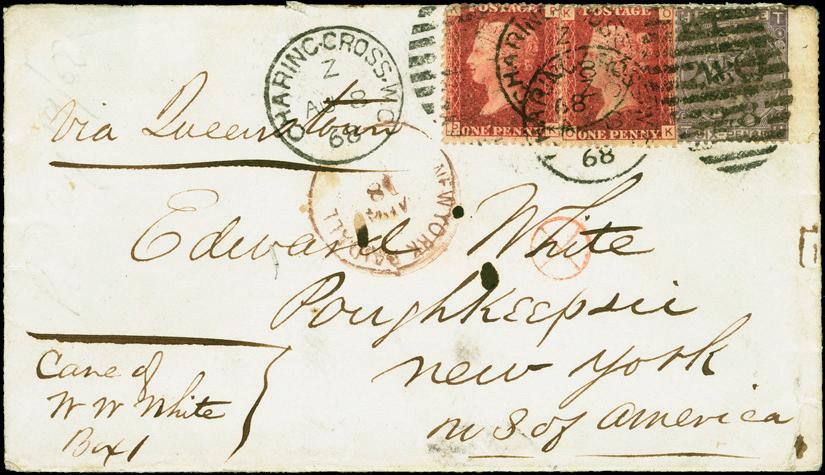 CHARING-CROSS.W.C
Z
AP 8
68
POSTAGE
ONE PENNY
POSTAGE
ONE PENNY
SIX-PENCE
CHARING
68
via Queenstown
NEW YORK PAID ALL
AP
18
Edward White
Poughkeepsie
new york
U S of America
Care of
W W White
Box 1